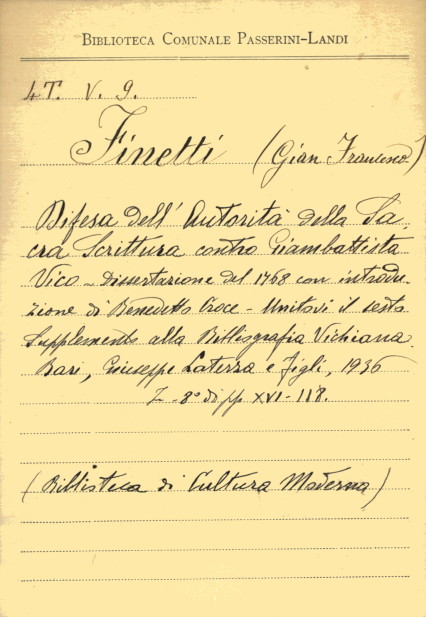 BIBLIOTECA COMUNALE PASSERINI-LANDI
4T. V. 9.
Finetti (Gian Francesco)
Difesa dell' Autorità della Sa
cra Scrittura contro Giambattista
Vico - Dissertazione del 1768 con introdu-
zione di Benedetto Croce - Unitovi il sesto
Supplemento alla Bibliografia Vichiana.
Bari, Giuseppe Laterza e Figli, 1936
- 8° di pp XVI-118.
(Biblioteca di Cultura Moderna)